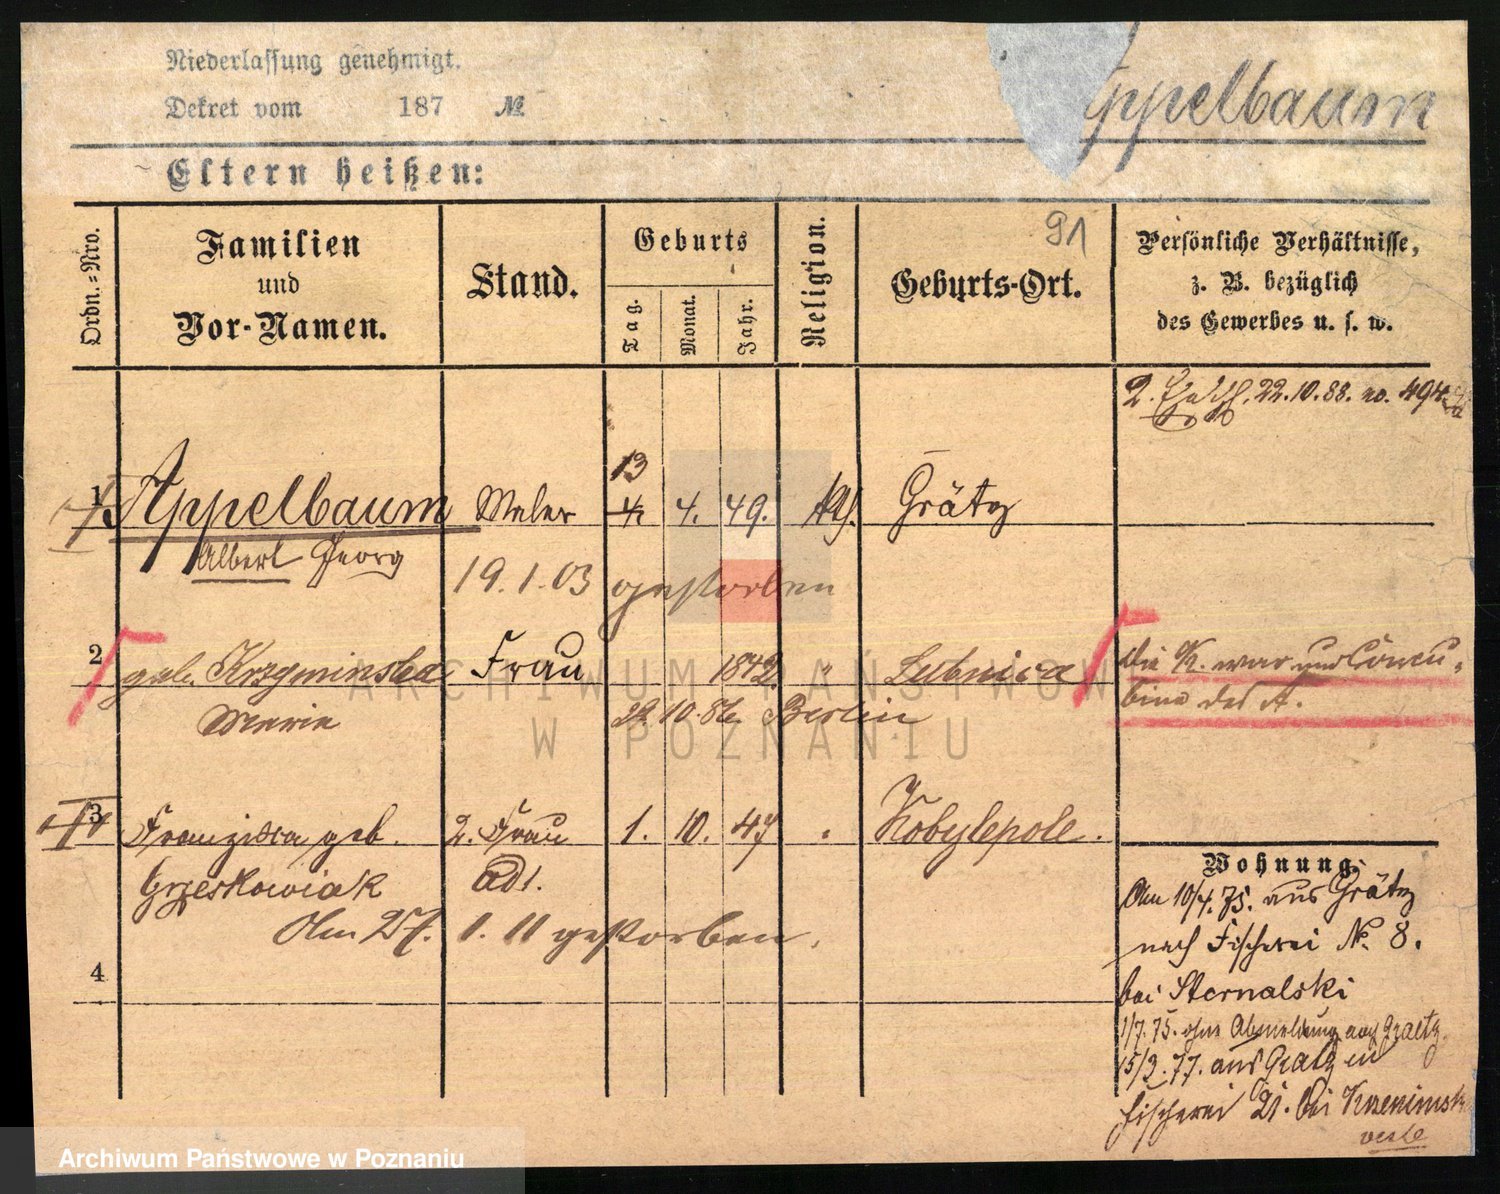 Niederlassung genehmigt.
Dekret vom 187 №
Appelbaum
Eltern heißen:
Ordn.=Nro.
Familien
und
Vor-Namen.
Stand.
Geburts
Tag.
Monat.
Jahr.
Religion.
Geburts-Ort.
91
Persönliche Verhältnisse,
z. B. bezüglich
des Gewerbes u. s. w.
2. 22.10.88. no. 494
1 Appelbaum Maler 13 4. 4. 49. kth. Grätz
Albert Georg
19.1.03 gestorben
2 geb. Krzyminska Frau 1842 " Lubnica
Marie
29.10.86 Berlin
die K. war nur Concu-
bine des A.
3 Franziska geb. 2. Frau 1. 10. 47 " Kobylepole.
Grzeskowiak
Am 27. 1. 11 gestorben.
4
Wohnung.
Am 10/4.75. aus Grätz
nach Fischerei No. 8.
bei Sternalski
1/7.75. ohne Abmeldung nach Graetz.
15/3.77. aus Graetz in
Fischerei 21. bei
ARCHIWUM PAŃSTWOWE
W POZNANIU
Archiwum Państwowe w Poznaniu